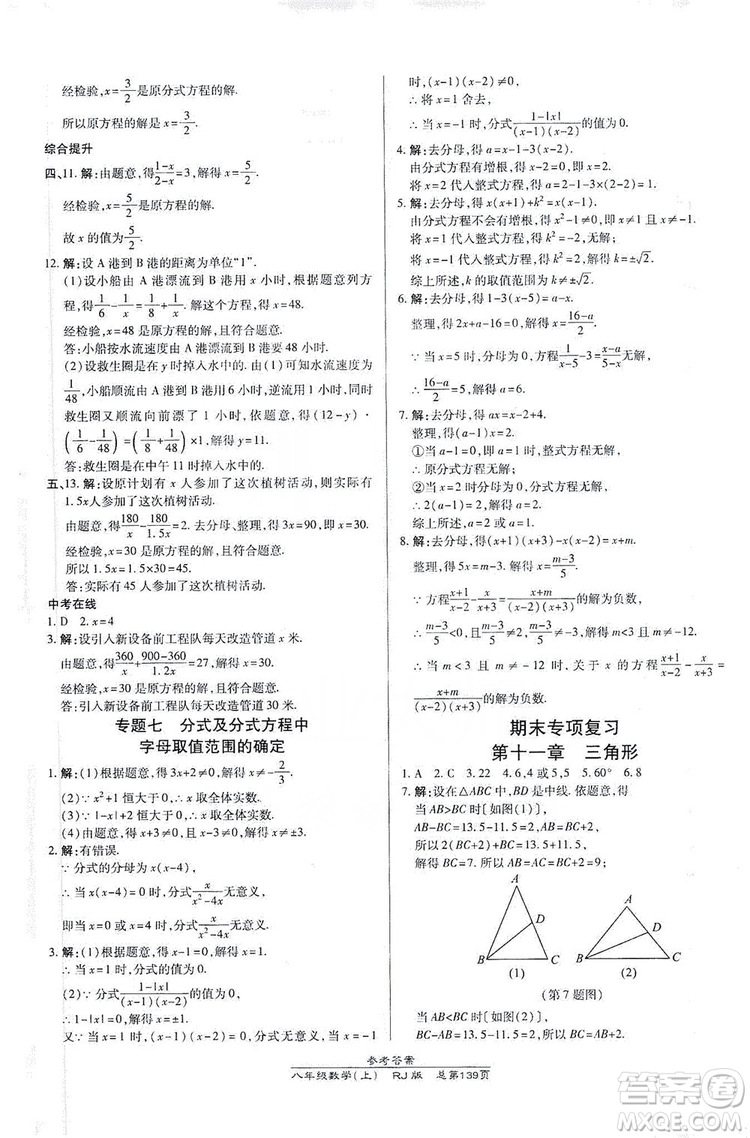 经检验,x=3/2是原分式方程的解.
所以原方程的解是x=3/2.
综合提升
四、11. 解:由题意,得(1-x)/(2-x)=3,解得x=5/2.
经检验,x=5/2是原分式方程的解.
故 x 的值为5/2.
12. 解:设 A 港到 B 港的距离为单位“1”.
(1)设小船由 A 港漂流到 B 港用 x 小时,根据题意,得1/6-1/x=1/8+1/x.解得 x=48.
经检验,x=48 是原方程的解,且符合题意.
答:小船按水流速度由 A 港漂流到 B 港要 48 小时.
(2)设救生圈是在 y 时掉入水中的.由(1)可知水流速度为1/48,小船顺流由 A 港到 B 港用 6 小时,逆流用 1 小时,同时救生圈又顺流向前漂了 1 小时,依题意,得(12-y)·
(1/6-1/48)=(1/8+1/48)×1,解得 y=11.
答:救生圈是在中午 11 时掉入水中的.
五、13. 解:设原计划有 x 人参加了这次植树活动,则实际有 1.5x人参加了这次植树活动.
由题意,得180/x-180/1.5x=2.去分母、整理,得 3x=90,即 x=30.
经检验,x=30 是原方程的解,且符合题意.
所以 1.5x=1.5×30=45.
答:实际有 45 人参加了这次植树活动.
中考在线
1. D 2. x=4
3. 解:设引入新设备前工程队每天改造管道 x 米.
由题意,得360/x+(900-360)/((1+20%)x)=27.解得 x=30.
经检验,x=30 是原方程的解,且符合题意.
答:引入新设备前工程队每天改造管道 30 米.
专题七 分式及分式方程中
字母取值范围的确定
1. 解:(1)根据题意,得 3x+2≠0,解得 x≠-2/3.
(2)∵x²+1 恒大于 0,∴x 取全体实数.
(3)∵|x|+2 恒大于 0,∴x 取全体实数.
(4)由题意,得|x|-3≠0,解得 x≠±3.
2. 解:有错误.
∵分式的分母为 x(x-4),
∴当 x(x-4)=0 时,分式x/(x²-4x)无意义,
即当 x=0 或 x=4 时,分式x/(x²-4x)无意义.
3. 解:(1)根据题意,得 x-1=0,且x+3≠0,
∴当 x=1 时,分式的值为 0.
(2)∵分式(1-|x|)/((x-1)(x-2))的值为 0,
∴1-|x|=0,解得 x=±1.
又∵当 x=1 时,(x-1)(x-2)=0,当 x=-1
时,(x-1)(x-2)≠0,
∴将 x=1 舍去,
∴当 x=-1 时,分式(1-|x|)/((x-1)(x-2))的值为 0.
4. 解:去分母,得 x=2(x-1)-a(x-1)(x-2).
由分式方程有增根,得 x-2=0,即 x=2.
将 x=2 代入整式方程,得 a=2-1-3×(2-2)=1.
5. 解:去分母,得 x(x+1)+k²=x(x-1).
由分式方程不会有增根,得 x²-1≠0,即 x≠±1.
将 x=1 代入整式方程,得 k²=-2,不成立;
将 x=-1 代入整式方程,得 k²=2,即 k≠±√2.
综上所述,k 的取值范围为 k≠±√2.
6. 解:去分母,得 1-3(x-5)=-(x-a).
整理,得 2x+a=16,解得 x=(16-a)/2.
∵当 x=5 时,分式方程(1)/(x-5)-3=(a-x)/(x-5)无解,
∴(16-a)/2=5,解得 a=6.
7. 解:去分母,得 ax=x-2+4.
整理,得(a-1)x=2.
①当 a=1 时,整式方程无解,
∴原分式方程无解;
②当 x=2 时分母为 0,分式方程无解,
把 x=2 代入(a-1)x=2,解得 a=2.
综上所述,a=2 或 a=1.
8. 解:去分母,得(x+1)(x+3)-x(x-2)=x+m.
整理,得 5x=m-3,解得 x=(m-3)/5.
∵方程(x+1)/(x-2)-x/(x+3)=(x+m)/((x-2)(x+3))的解为负数,
∴(m-3)/5<0,且(m-3)/5≠-3,解得 m<3 且 m≠-12.
∴当 m<3 且 m≠-12 时,关于 x 的方程(x+1)/(x-2)-x/(x+3)=
(x+m)/((x-2)(x+3))的解为负数.
期末专项复习
第十一章 三角形
1. A 2. C 3. 22 4. 6,4 或 5,5 5. 60° 6. 8
7. 解:设在△ABC 中,BD 是中线. 依题意,得
当 AB>BC 时[如图(1)],
AB-BC=13.5-11.5=2,AB=BC+2,
所以 2(BC+2)+BC=13.5+11.5,
解得 BC=7.
A
D
B
C
(1)
A
D
B
C
(2)
(第 7 题图)
当 AB<BC 时[如图(2)],
BC-AB=13.5-11.5=2,BC=AB+2,
参考答案
八年级数学(上) RJ版 总第139页